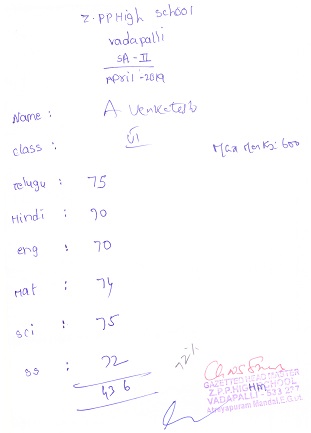 Z.PP High School
vadapalli
SA-II
April-2019
Name : A Venkatesh
class : VI
Max Marks: 600
Telugu : 75
Hindi : 70
eng : 70
Mat : 74
sci : 75
ss : 72
72%
436
GAZETTED HEAD MASTER
Z.P.P.HIGH SCHOOL
HM
VADAPALLI - 533 277
Atreyapuram Mandal, E.G.Dt.